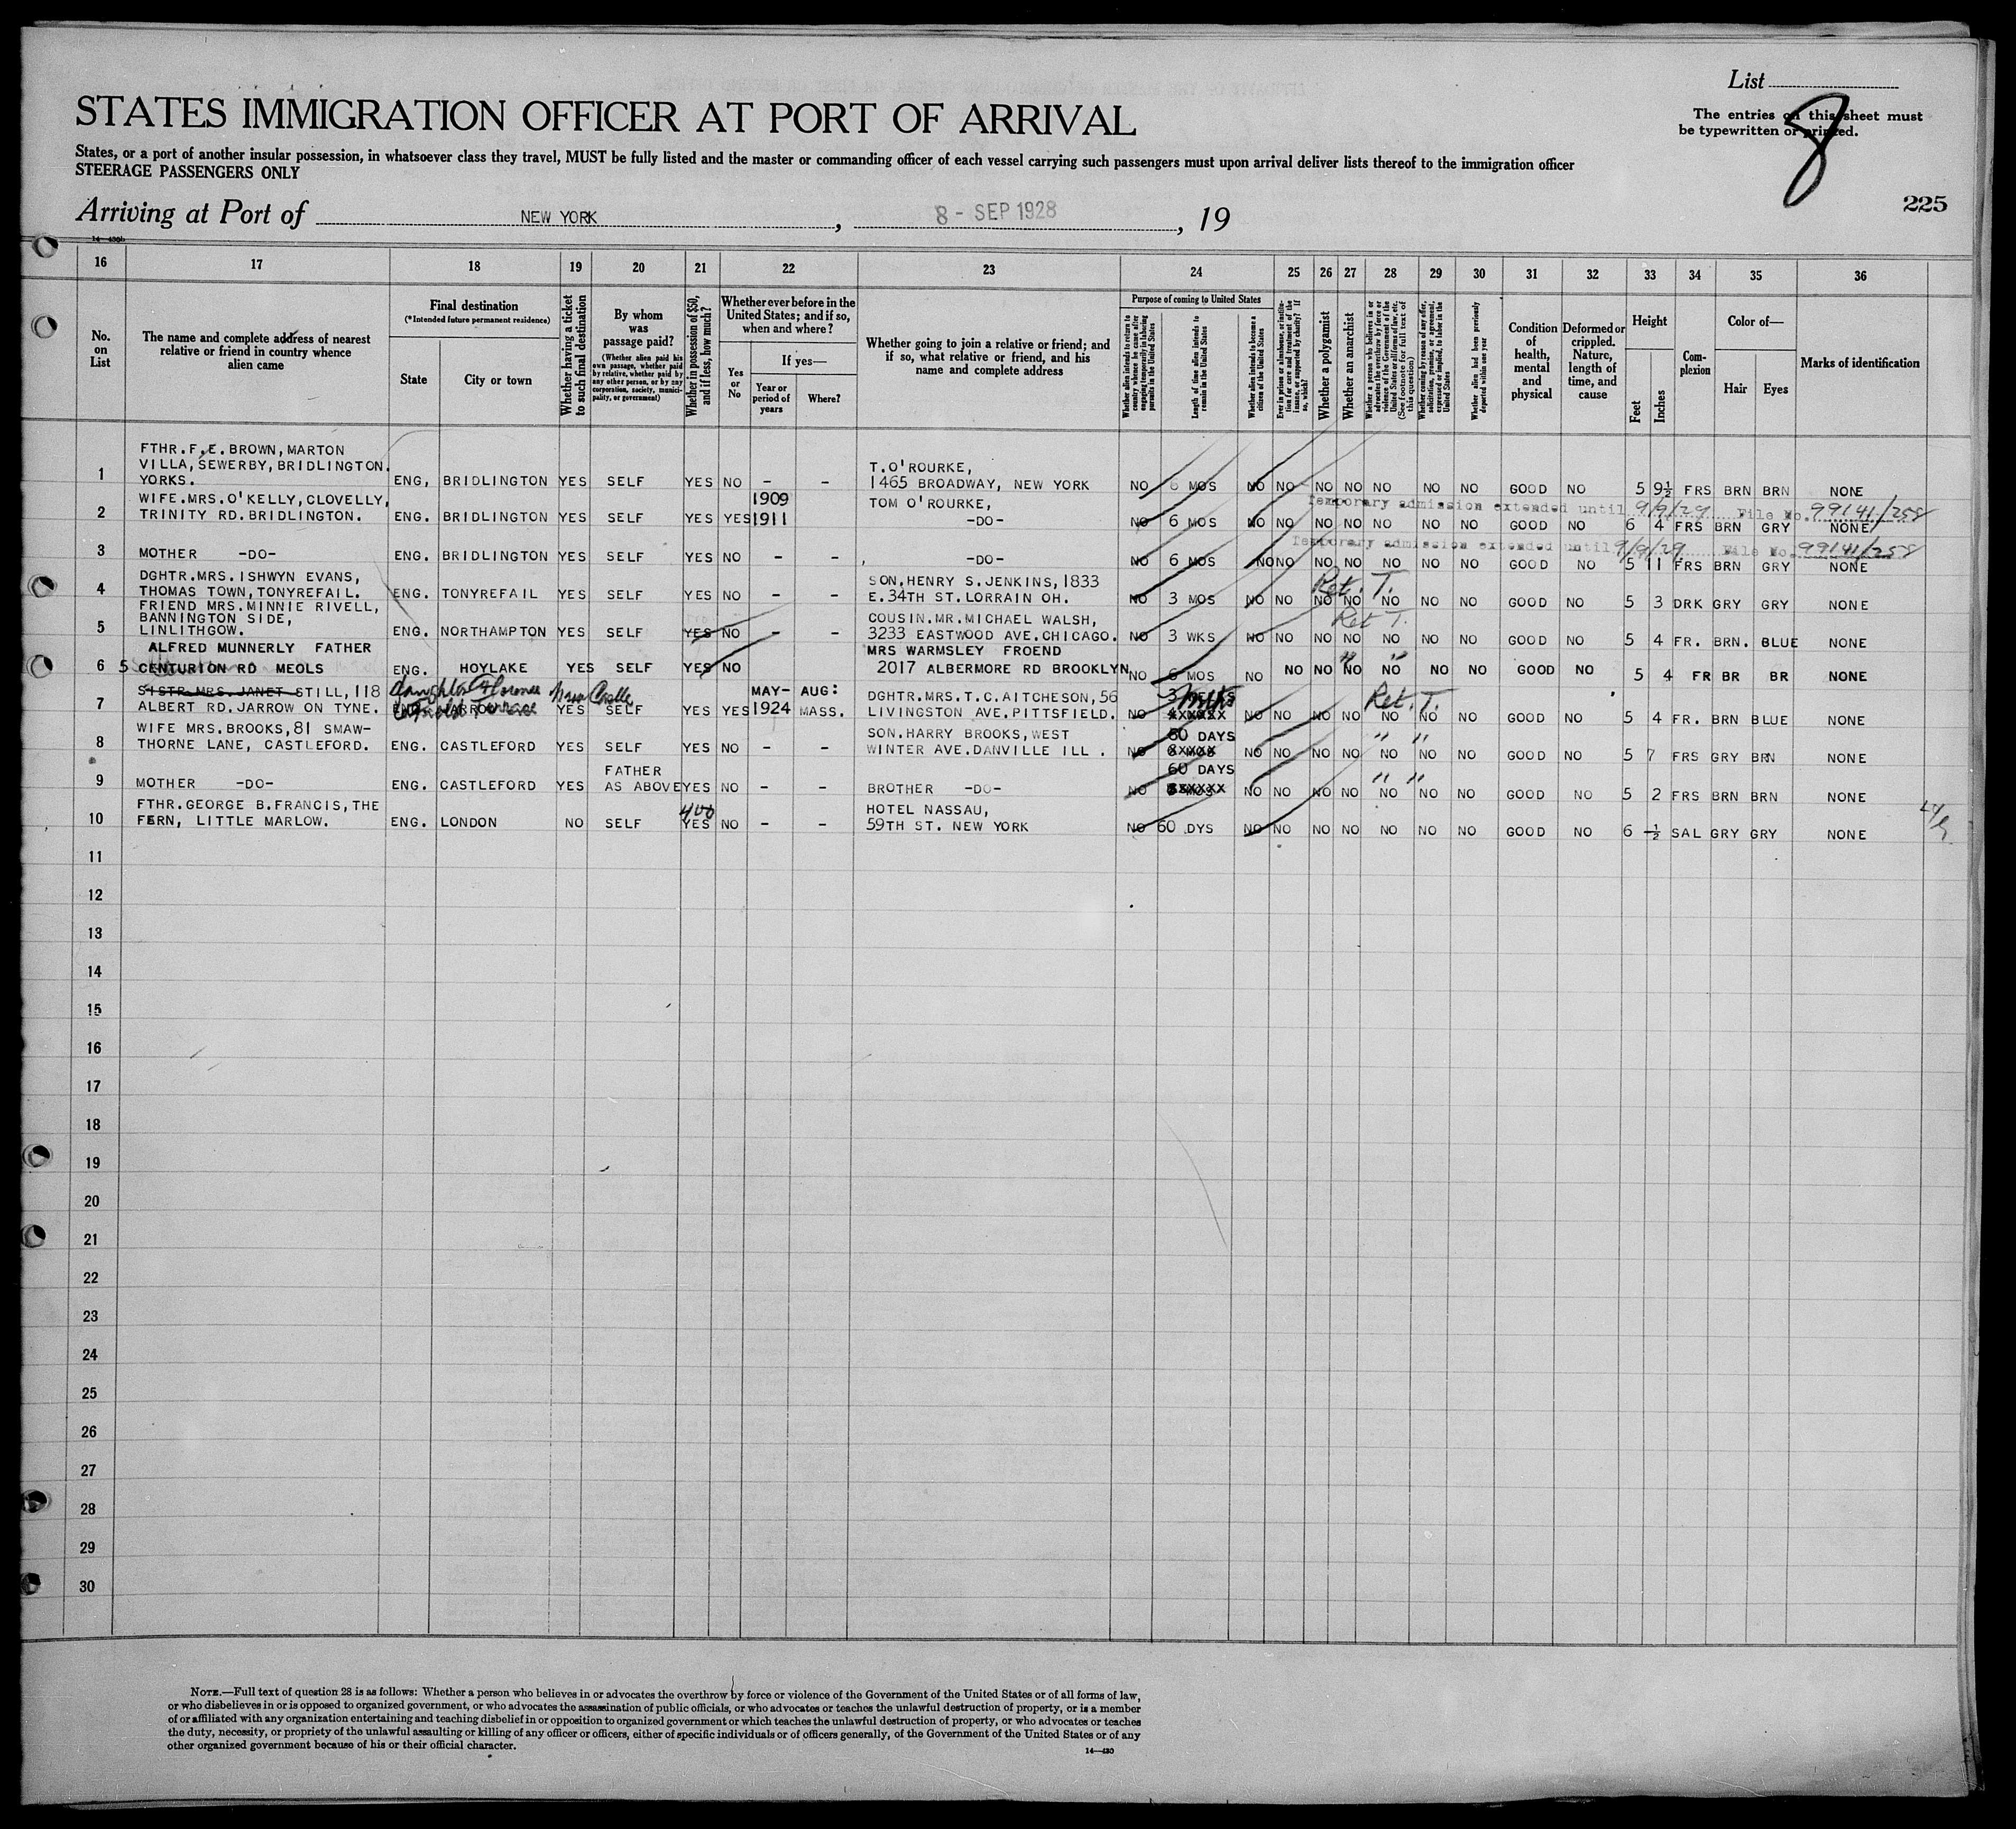 List
The entries on this sheet must
be typewritten or printed.
8
STATES IMMIGRATION OFFICER AT PORT OF ARRIVAL
States, or a port of another insular possession, in whatsoever class they travel, MUST be fully listed and the master or commanding officer of each vessel carrying such passengers must upon arrival deliver lists thereof to the immigration officer
STEERAGE PASSENGERS ONLY
Arriving at Port of NEW YORK, 8 - SEP 1928, 19
225
14-430b
16 17 18 19 20 21 22 23 24 25 26 27 28 29 30 31 32 33 34 35 36
No. on List
The name and complete address of nearest relative or friend in country whence alien came
Final destination
(*Intended future permanent residence)
State
City or town
Whether having a ticket to such final destination
By whom was passage paid?
(Whether alien paid his own passage, whether paid by relative, whether paid by any other person, or by any corporation, society, municipality, or government)
Whether in possession of $50, and if less, how much?
Whether ever before in the United States; and if so, when and where?
Yes or No
If yes—
Year or period of years
Where?
Whether going to join a relative or friend; and if so, what relative or friend, and his name and complete address
Purpose of coming to United States
Whether alien intends to return to country whence he came after engaging temporarily in laboring pursuits in the United States
Length of time alien intends to remain in the United States
Whether alien intends to become a citizen of the United States
Ever in prison or almshouse, or institution for care and treatment of the insane, or supported by charity? If so, which?
Whether a polygamist
Whether an anarchist
Whether a person who believes in or advocates the overthrow by force or violence of the Government of the United States or all forms of law, etc. (See footnote for full text of this question)
Whether coming by reason of any offer, solicitation, promise, or agreement, expressed or implied, to labor in the United States
Whether alien had been previously deported within one year
Condition of health, mental and physical
Deformed or crippled. Nature, length of time, and cause
Height
Feet
Inches
Complexion
Color of—
Hair
Eyes
Marks of identification
FTHR.F.E.BROWN,MARTON
VILLA,SEWERBY,BRIDLINGTON. T.O'ROURKE,
1 YORKS. ENG, BRIDLINGTON YES SELF YES NO - - 1465 BROADWAY, NEW YORK NO 6 MOS NO NO NO NO NO NO NO GOOD NO 5 9½ FRS BRN BRN NONE
WIFE.MRS.O'KELLY,CLOVELLY, 1909 TOM O'ROURKE, Temporary admission extended until 9/9/29 File No. 99141/258
2 TRINITY RD.BRIDLINGTON. ENG. BRIDLINGTON YES SELF YES YES 1911 -DO- NO 6 MOS NO NO NO NO NO NO NO GOOD NO 6 4 FRS BRN GRY NONE
Temporary admission extended until 9/9/29 File No. 99141/258
3 MOTHER -DO- ENG. BRIDLINGTON YES SELF YES NO - - -DO- NO 6 MOS NO NO NO NO NO NO NO GOOD NO 5 11 FRS BRN GRY NONE
DGHTR.MRS.ISHWYN EVANS, SON.HENRY S.JENKINS,1833 Ret. T.
4 THOMAS TOWN,TONYREFAIL. ENG. TONYREFAIL YES SELF YES NO - - E.34TH ST.LORRAIN OH. NO 3 MOS NO NO NO NO NO NO NO GOOD NO 5 3 DRK GRY GRY NONE
FRIEND MRS.MINNIE RIVELL,
BANNINGTON SIDE, COUSIN.MR.MICHAEL WALSH, Ret T.
5 LINLITHGOW. ENG. NORTHAMPTON YES SELF YES NO - - 3233 EASTWOOD AVE.CHICAGO. NO 3 WKS NO NO NO NO NO NO NO GOOD NO 5 4 FR. BRN. BLUE NONE
ALFRED MUNNERLY FATHER MRS WARMSLEY FROEND " "
6 5 CENTURION RD MEOLS ENG. HOYLAKE YES SELF YES NO 2017 ALBERMORE RD BROOKLYN NO 6 MOS NO NO NO NO NO NO NO GOOD NO 5 4 FR BR BR NONE
SISTR.MRS.JANET STILL,118 daughter Florence New Castle MAY- AUG: DGHTR.MRS.T.C.AITCHESON,56 3 Mths Ret. T.
7 ALBERT RD.JARROW ON TYNE. ENG. JARROW Terrace YES SELF YES YES 1924 MASS. LIVINGSTON AVE.PITTSFIELD. NO XXXXXX NO NO NO NO NO NO NO GOOD NO 5 4 FR. BRN BLUE NONE
WIFE MRS.BROOKS,81 SMAW- SON.HARRY BROOKS,WEST 60 DAYS " "
8 THORNE LANE, CASTLEFORD. ENG. CASTLEFORD YES SELF YES NO - - WINTER AVE.DANVILLE ILL . NO XXXXX NO NO NO NO NO NO NO GOOD NO 5 7 FRS GRY BRN NONE
FATHER 60 DAYS " "
9 MOTHER -DO- ENG. CASTLEFORD YES AS ABOVE YES NO - - BROTHER -DO- NO XXXXXX NO NO NO NO NO NO NO GOOD NO 5 2 FRS BRN BRN NONE
FTHR.GEORGE B.FRANCIS,THE 400 HOTEL NASSAU,
10 FERN, LITTLE MARLOW. ENG. LONDON NO SELF YES NO - - 59TH ST. NEW YORK NO 60 DYS NO NO NO NO NO NO NO GOOD NO 6 ½ SAL GRY GRY NONE
11
12
13
14
15
16
17
18
19
20
21
22
23
24
25
26
27
28
29
30
NOTE.—Full text of question 28 is as follows: Whether a person who believes in or advocates the overthrow by force or violence of the Government of the United States or of all forms of law,
or who disbelieves in or is opposed to organized government, or who advocates the assassination of public officials, or who advocates or teaches the unlawful destruction of property, or is a member
of or affiliated with any organization entertaining and teaching disbelief in or opposition to organized government or which teaches the unlawful destruction of property, or who advocates or teaches
the duty, necessity, or propriety of the unlawful assaulting or killing of any officer or officers, either of specific individuals or of officers generally, of the Government of the United States or of any
other organized government because of his or their official character.
14—430